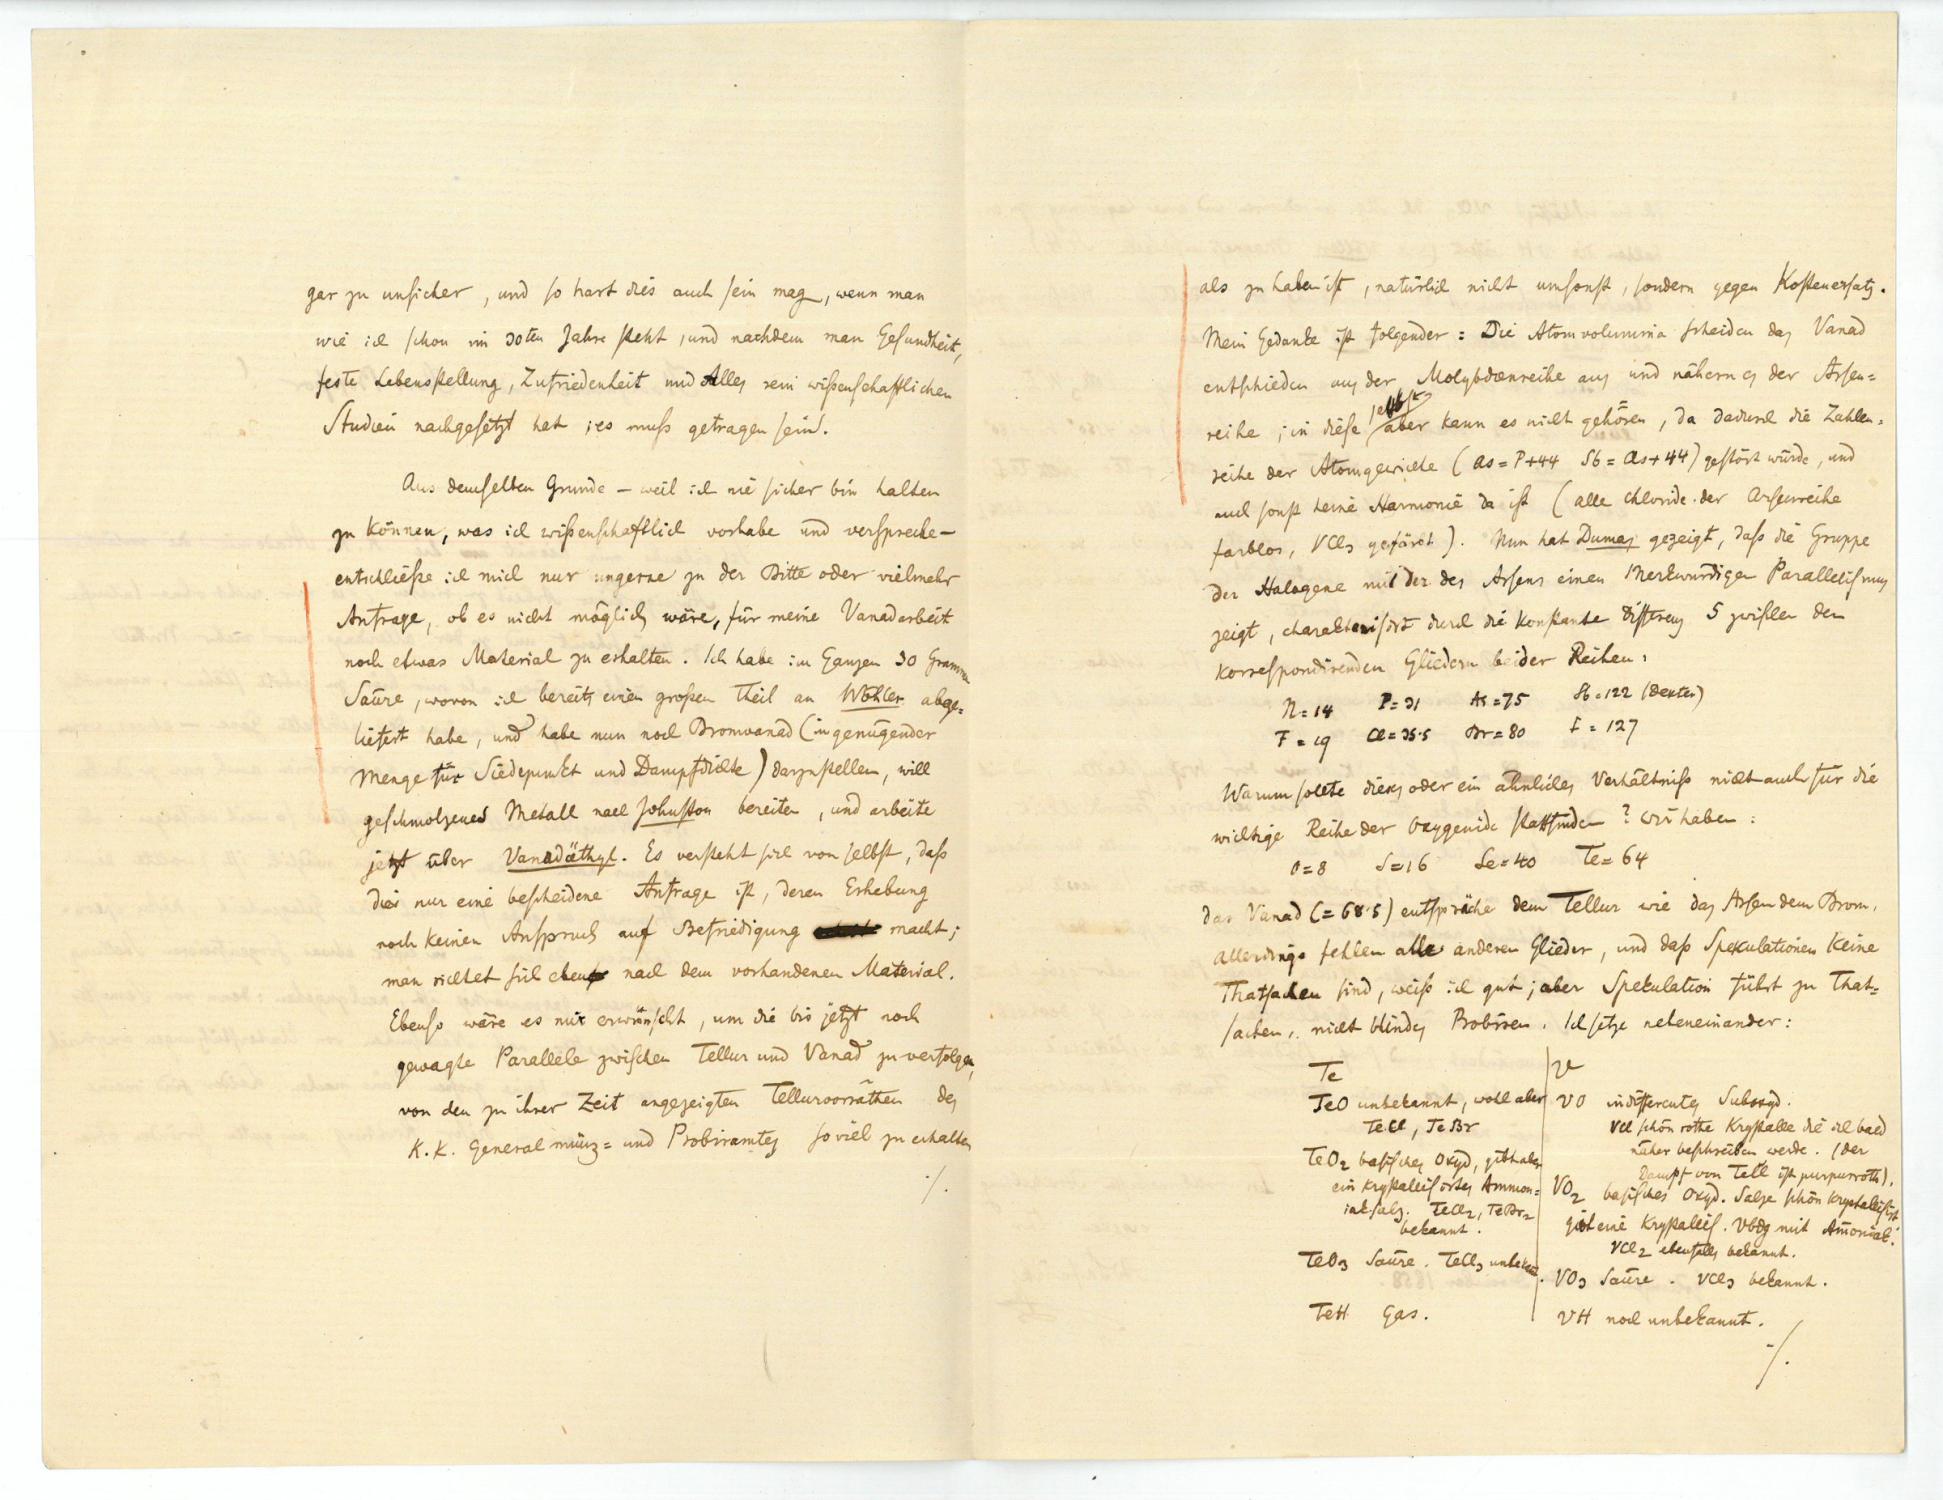 gar zu unsicher, und so hart dies auch sein mag, wenn man
wie ich schon im 30ten Jahre steht, und nachdem man Gesundheit,
feste Lebensstellung, Zufriedenheit und Alles rein wißenschaftlichen
Studien nachgesetzt hat; es muss getragen sein.
Aus demselben Grunde – weil ich nie sicher bin halten
zu können, was ich wißenschaftlich vorhabe und verspreche –
entschließe ich mich nur ungerne zu der Bitte oder vielmehr
Anfrage, ob es nicht möglich wäre, für meine Vanadarbeit
noch etwas Material zu erhalten. Ich habe im Ganzen 30 Gramm
Saüre, wovon ich bereits einen großen Theil an Wöhler abge=
liefert habe, und habe nun noch Bromvanad (in genügender
Menge für Siedepunkt und Dampfdichte) darzustellen, will
geschmolzenes Metall nach Johnston bereiten, und arbeite
jetzt über Vanadäthyl. Es versteht sich von selbst, daß
dies nur eine bescheidene Anfrage ist, deren Erhebung
noch keinen Anspruch auf Befriedigung macht;
man richtet sich eben nach dem vorhandenen Material.
Ebenso wäre es mir erwünscht, um die bis jetzt noch
gewagte Parallele zwischen Tellur und Vanad zu verfolgen,
von den zu ihrer Zeit angezeigten Tellurvorräthen des
K. K. General münz= und Probiramtes soviel zu erhalten
./.
als zu haben ist, natürlich nicht umsonst, sondern gegen Kostenersatz.
Mein Gedanke ist folgender: Die Atomvolumina scheiden das Vanad
entschieden aus der Molybdænreihe aus und nähern es der Arsen=
reihe; in diese selbst aber kann es nicht gehören, da dadurch die Zahlen=
reihe der Atomgewichte (As = P+44 Sb = As+44) gestört würde, und
auch sonst keine Harmonie da ist (alle Chloride der Arsenreihe
farblos, VCl3 gefärbt). Nun hat Dumas gezeigt, daß die Gruppe
der Halogene mit der des Arsens einen merkwürdigen Parallelismus
zeigt, charakterisirt durch die konstante Differenz 5 zwischen den
korrespondirenden Gliedern beider Reihen:
N = 14 P = 31 As = 75 Sb = 122 (Dexter)
F = 19 Cl = 35.5 Br = 80 I = 127
Warum sollte dieses oder ein ähnliches Verhältniß nicht auch für die
wichtige Reihe der Oxygenide stattfinden? Wir haben:
O = 8 S = 16 Se = 40 Te = 64
das Vanad (= 68.5) entspräche dem Tellur wie das Arsen dem Brom.
Allerdings fehlen alle anderen Glieder, und daß Spekulationen keine
Thatsachen sind, weiß ich gut; aber Spekulation führt zu That=
sachen, nicht blindes Probiren. Ich setze nebeneinander:
Te
TeO unbekannt, wohl aber
TeCl, TeBr
TeO2 basisches Oxyd, gibt aber
ein krystallisirtes Ammon=
iaksalz. TeCl2, TeBr2
bekannt.
TeO3 Saüre. TeCl3 unbekannt.
TeH Gas.
V
VO indifferentes Suboxyd.
VCl schön rothe Krystalle die ich bald
näher beschreiben werde. (der
Dampf von TeCl ist purpurroth).
VO2 basisches Oxyd. Salze schön krystallisirt
gibt eine krystallis. Vbdg mit Amoniak.
VCl2 ebenfalls bekannt.
VO3 Saüre. VCl3 bekannt.
VH noch unbekannt.
./.